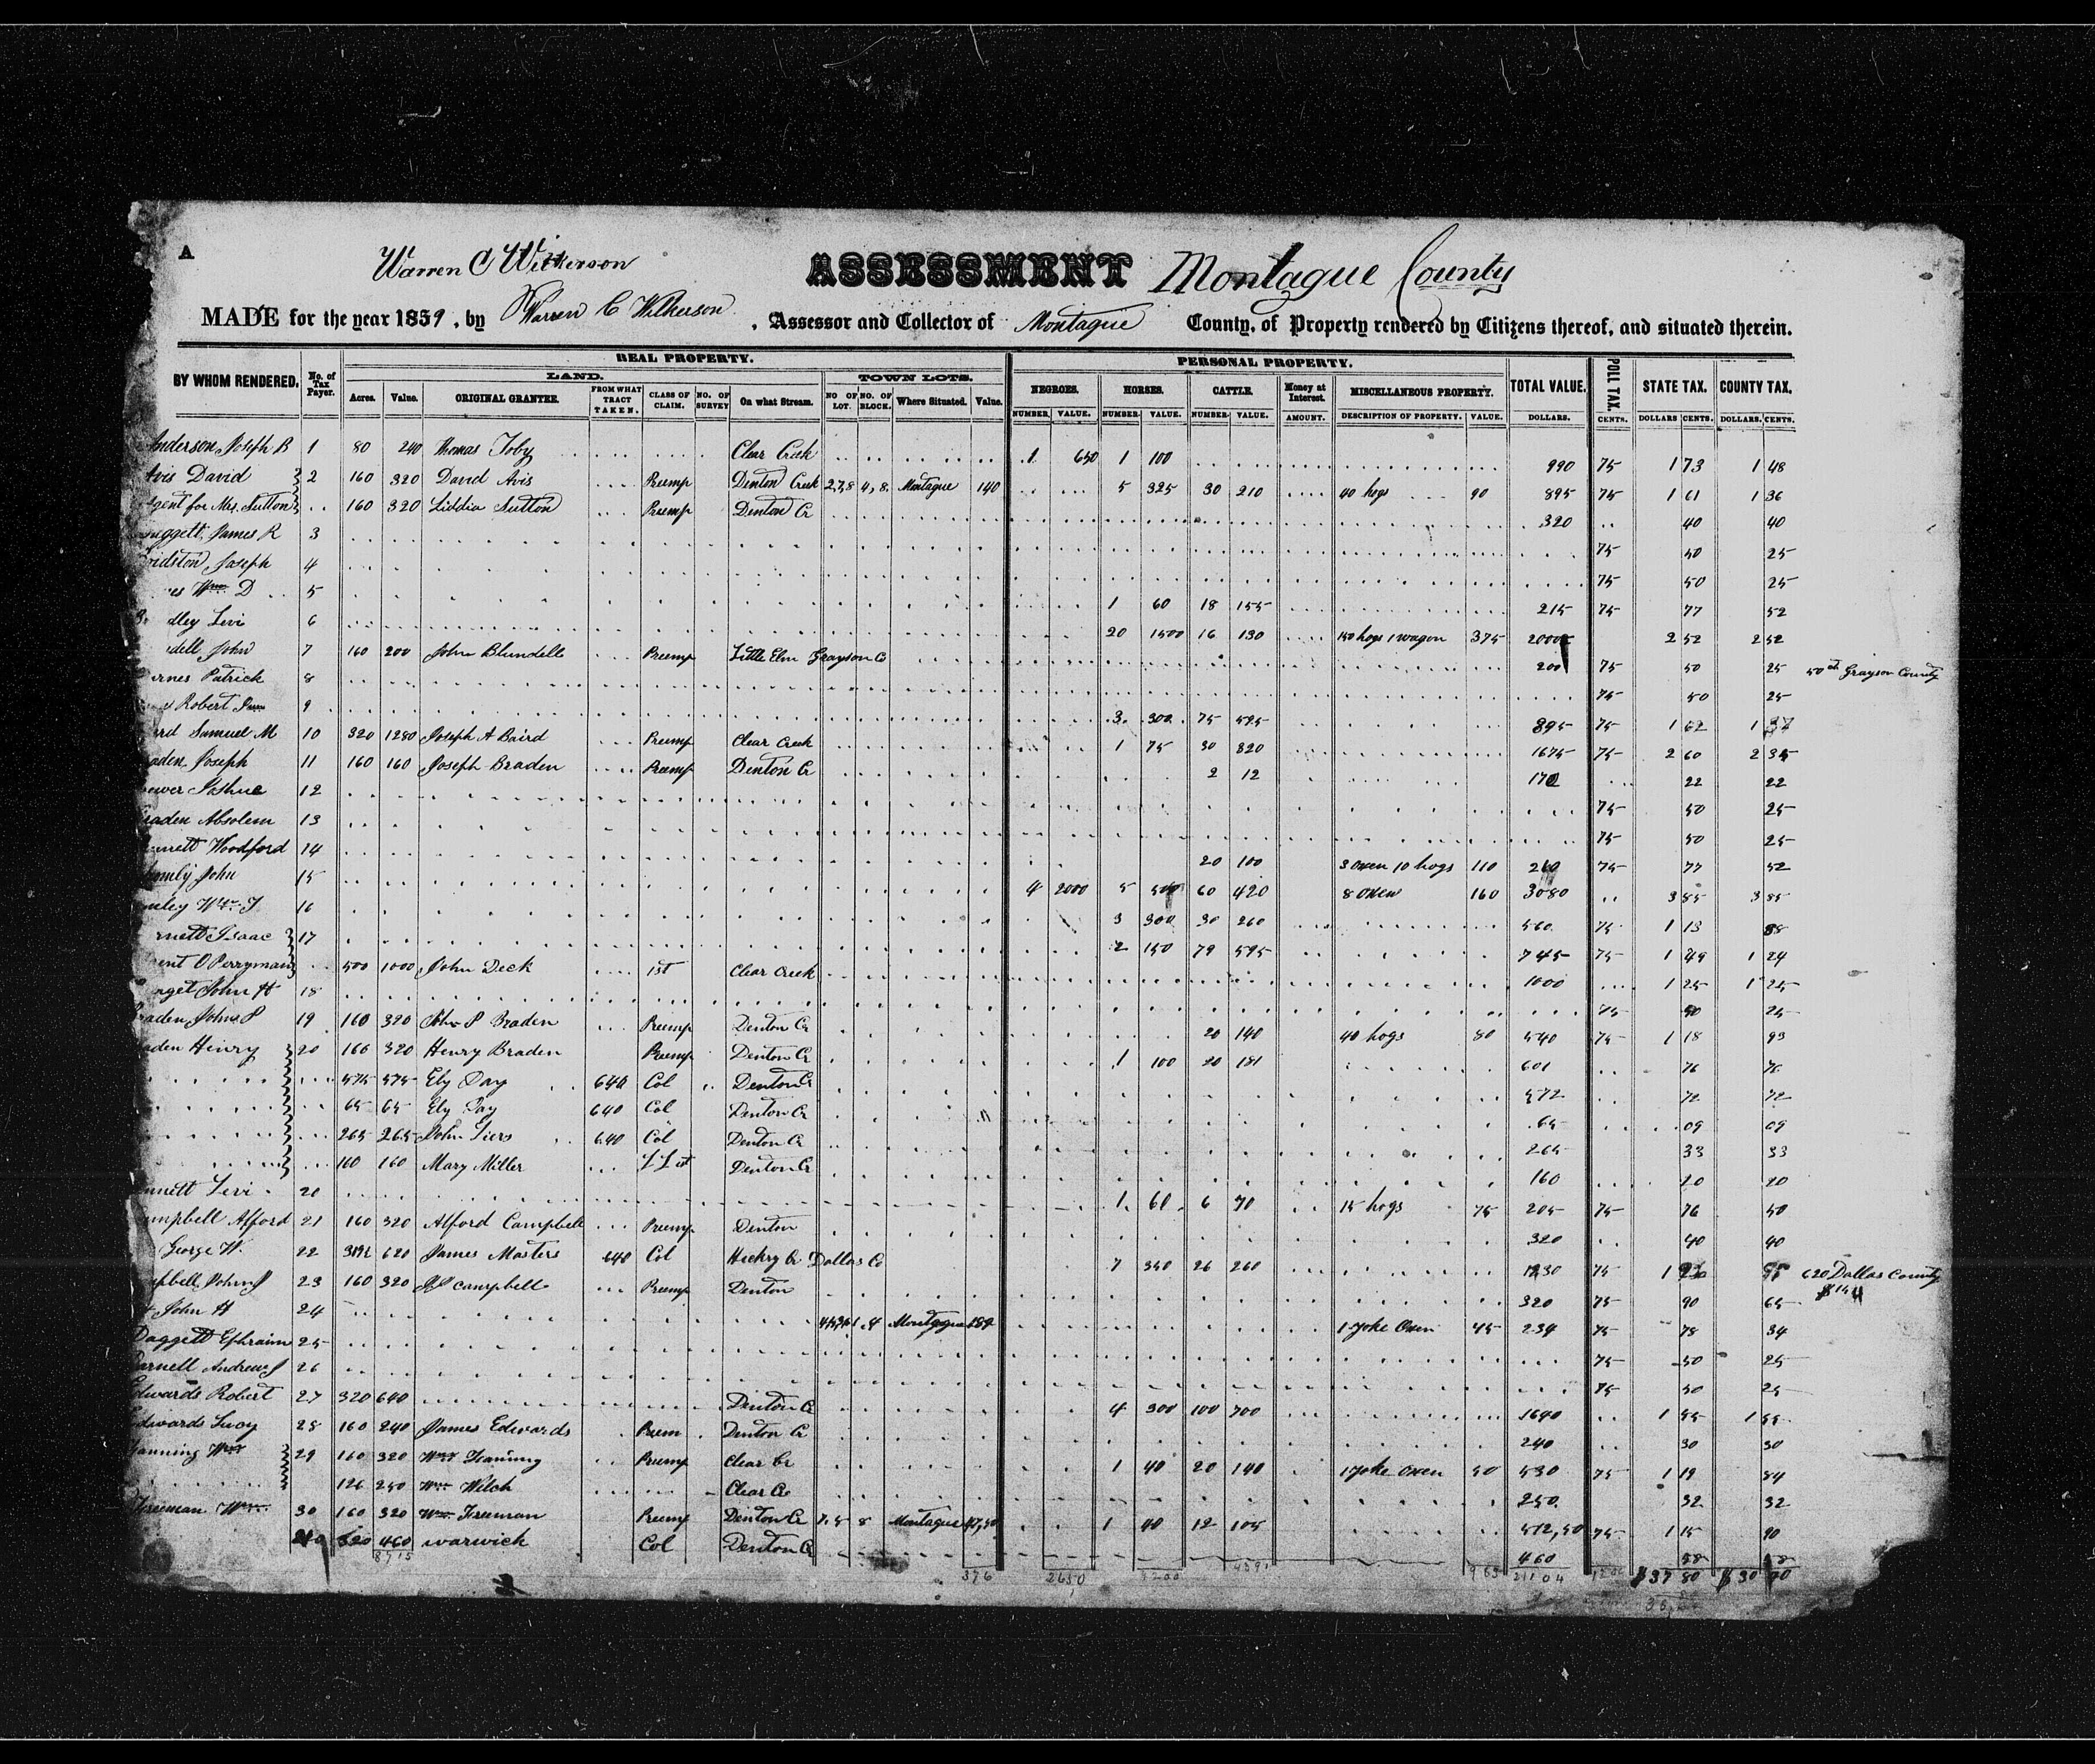 A
Warren C Wilkerson ASSESSMENT Montague County
MADE for the year 1859, by Warren C Wilkerson, Assessor and Collector of Montague County, of Property rendered by Citizens thereof, and situated therein.
REAL PROPERTY. PERSONAL PROPERTY.
BY WHOM RENDERED. No. of Tax Payer. LAND. TOWN LOTS. NEGROES. HORSES. CATTLE. Money at Interest. MISCELLANEOUS PROPERTY. TOTAL VALUE. POLL TAX. STATE TAX. COUNTY TAX.
Acres. Value. ORIGINAL GRANTEE. FROM WHAT TRACT TAKEN. CLASS OF CLAIM. NO. OF SURVEY On what Stream. NO OF LOT. NO. OF BLOCK. Where Situated. Value. NUMBER. VALUE. NUMBER VALUE. NUMBER VALUE. AMOUNT. DESCRIPTION OF PROPERTY. VALUE. DOLLARS. CENTS. DOLLARS CENTS. DOLLARS. CENTS.
Anderson Joseph B 1 80 240 Thomas Toby Clear Creek 1 650 1 100 990 75 1 73 1 48
Avis David 2 160 320 David Avis Preemp Denton Creek 2,7,8 4,8. Montague 140 5 325 30 210 40 hogs 90 895 75 1 61 1 36
Agent for Mrs. Sutton 160 320 Liddia Sutton Preemp Denton Cr 320 40 40
uggett James R 3 75 50 25
ridston Joseph 4 75 50 25
es Wm D 5 1 60 18 155 215 75 77 52
dley Levi 6 20 1500 16 130 150 hogs 1 wagon 375 2000 2 52 2 52
dell John 7 160 200 John Blundell Preemp Little Elm Grayson Co 200 75 50 25 50 ct Grayson County
rnes Patrick 8 75 50 25
Robert 9 3 300 75 595 895 75 1 62 1 37
ard Samuel M 10 320 1280 Joseph A Baird Preemp Clear Creek 1 75 30 320 1675 75 2 60 2 35
aden Joseph 11 160 160 Joseph Braden Preemp Denton Cr 2 12 172 22 22
ower Joshue 12 75 50 25
raden Absolem 13 75 50 25
nnett Woodford 14 20 100 3 oxen 10 hogs 110 210 75 77 52
mly John 15 4 2000 5 500 60 420 8 oxen 160 3080 3 85 3 85
nley Wm T 16 3 300 30 260 560 75 1 13 88
rnett Isaac 17 2 150 79 595 745 75 1 49 1 24
gent O Perryman 500 1000 John Deck 1st Clear Creek 1000 1 25 1 25
rget John H 18 75 50 25
raden John P 19 160 320 John P Braden Preemp Denton Cr 20 140 40 hogs 80 540 75 1 18 93
aden Henry 20 160 320 Henry Braden Preemp Denton Cr 1 100 20 181 601 76 76
575 575 Ely Day 640 Col Denton Cr 572 72 72
65 65 Ely Day 640 Col Denton Cr 65 09 09
265 265 John Siers 640 Col Denton Cr 265 33 33
160 160 Mary Miller Denton Cr 160 20 20
nnett Levi 20 1 60 6 70 15 hogs 75 205 75 76 50
mpbell Alford 21 160 320 Alford Campbell Preemp Denton 320 40 40
George W. 22 620 James Masters 640 Col Hickry Cr Dallas Co 7 350 26 260 1230 75 1 620 Dallas County
mpbell John J 23 160 320 Campbell Preemp Denton 320 75 90 65
John H 24 Montague 189 1 yoke Oxen 45 234 75 78 34
Daggett Ephraim 25 75 50 25
Darnell Andrew J 26 75 50 25
Edwards Robert 27 320 640 Denton Cr 4 300 100 700 1640 1 55 1 55
Edwards Lucy 28 160 240 James Edwards Preem Denton Cr 240 30 30
Fanning Wm 29 160 320 Wm Fanning Preemp Clear Cr 1 40 20 140 1 yoke oxen 50 530 75 1 19 84
126 250 Wm Welch Clear Cr 250 32 32
Freeman Wm 30 160 320 Wm Freeman Preemp Denton Cr 7,5 8 Montague 47,50 1 40 12 105 512,50 75 1 15 90
320 460 Warwick Col Denton Cr 460 58 58
8715 376 2650 3200 4591 963 21104 $37 80 $30